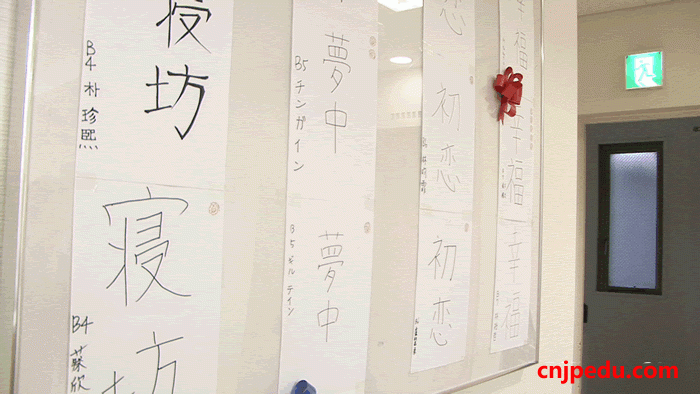 寝
坊
B4 朴 珍 熙
寝
坊
B4 蔡 欣
夢
中
B5 チンガイン
夢
中
恋
初
恋
初
恋
幸
福
幸
福
幸
福
cnjpedu.com